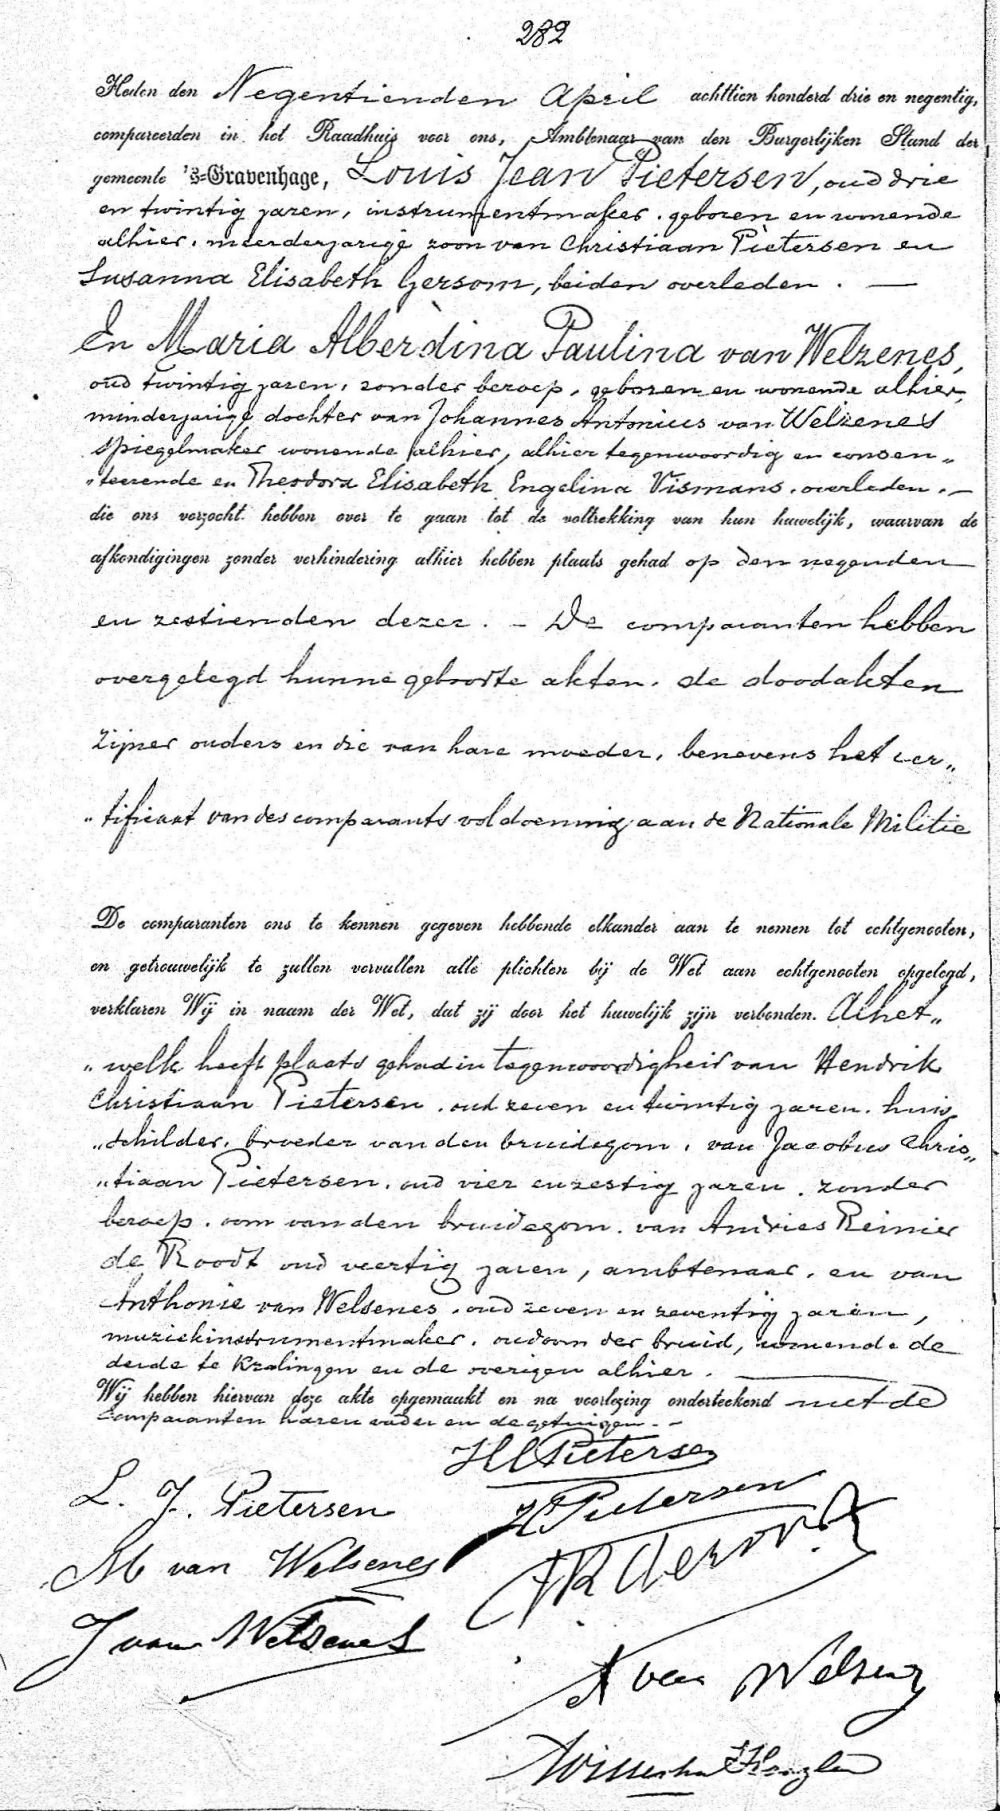 282
Heden den Negentienden April achttien honderd drie en negentig,
compareerden in het Raadhuis voor ons, Ambtenaar van den Burgerlijken Stand der
gemeente 's-Gravenhage, Louis Jean Pietersen, oud drie
en twintig jaren, instrumentmaker, geboren en wonende
alhier, meerderjarige zoon van Christiaan Pietersen en
Susanna Elisabeth Gersom, beiden overleden. —
En Maria Alberdina Paulina van Welzenes,
oud twintig jaren, zonder beroep, geboren en wonende alhier,
minderjarige dochter van Johannes Antonius van Welzenes
spiegelmaker wonende alhier, alhier tegenwoordig en consen„
„teerende en Theodora Elisabeth Engelina Vismans, overleden. —
die ons verzocht hebben over te gaan tot de voltrekking van hun huwelijk, waarvan de
afkondigingen zonder verhindering alhier hebben plaats gehad op den negenden
en zestienden dezer. — De comparanten hebben
overgelegd hunne geboorte akten, de doodakten
zijner ouders en die van hare moeder, benevens het cer„
„tificaat van des comparants voldoening aan de Nationale Militie
De comparanten ons te kennen gegeven hebbende elkander aan te nemen tot echtgenooten,
en getrouwelijk te zullen vervullen alle plichten bij de Wet aan echtgenooten opgelegd,
verklaren Wij in naam der Wet, dat zij door het huwelijk zijn verbonden. Alhet„
„welk heeft plaats gehad in tegenwoordigheid van Hendrik
Christiaan Pietersen, oud zeven en twintig jaren, huis
„schilder, broeder van den bruidegom, van Jacobus Chris„
„tiaan Pietersen, oud vier en zestig jaren, zonder
beroep, oom van den bruidegom, van Andries Reinier
de Roodt oud veertig jaren, ambtenaar, en van
Anthonie van Welsenes, oud zeven en zeventig jaren,
muziekinstrumentmaker, oudoom der bruid, wonende de
derde te Kralingen en de overigen alhier. —
Wij hebben hiervan deze akte opgemaakt en na voorlezing onderteekend met de
comparanten haren vader en de getuigen. —
HCPietersen
L. J. Pietersen
Pietersen
M van Welsenes
J van Welsenes
A van Welsenes